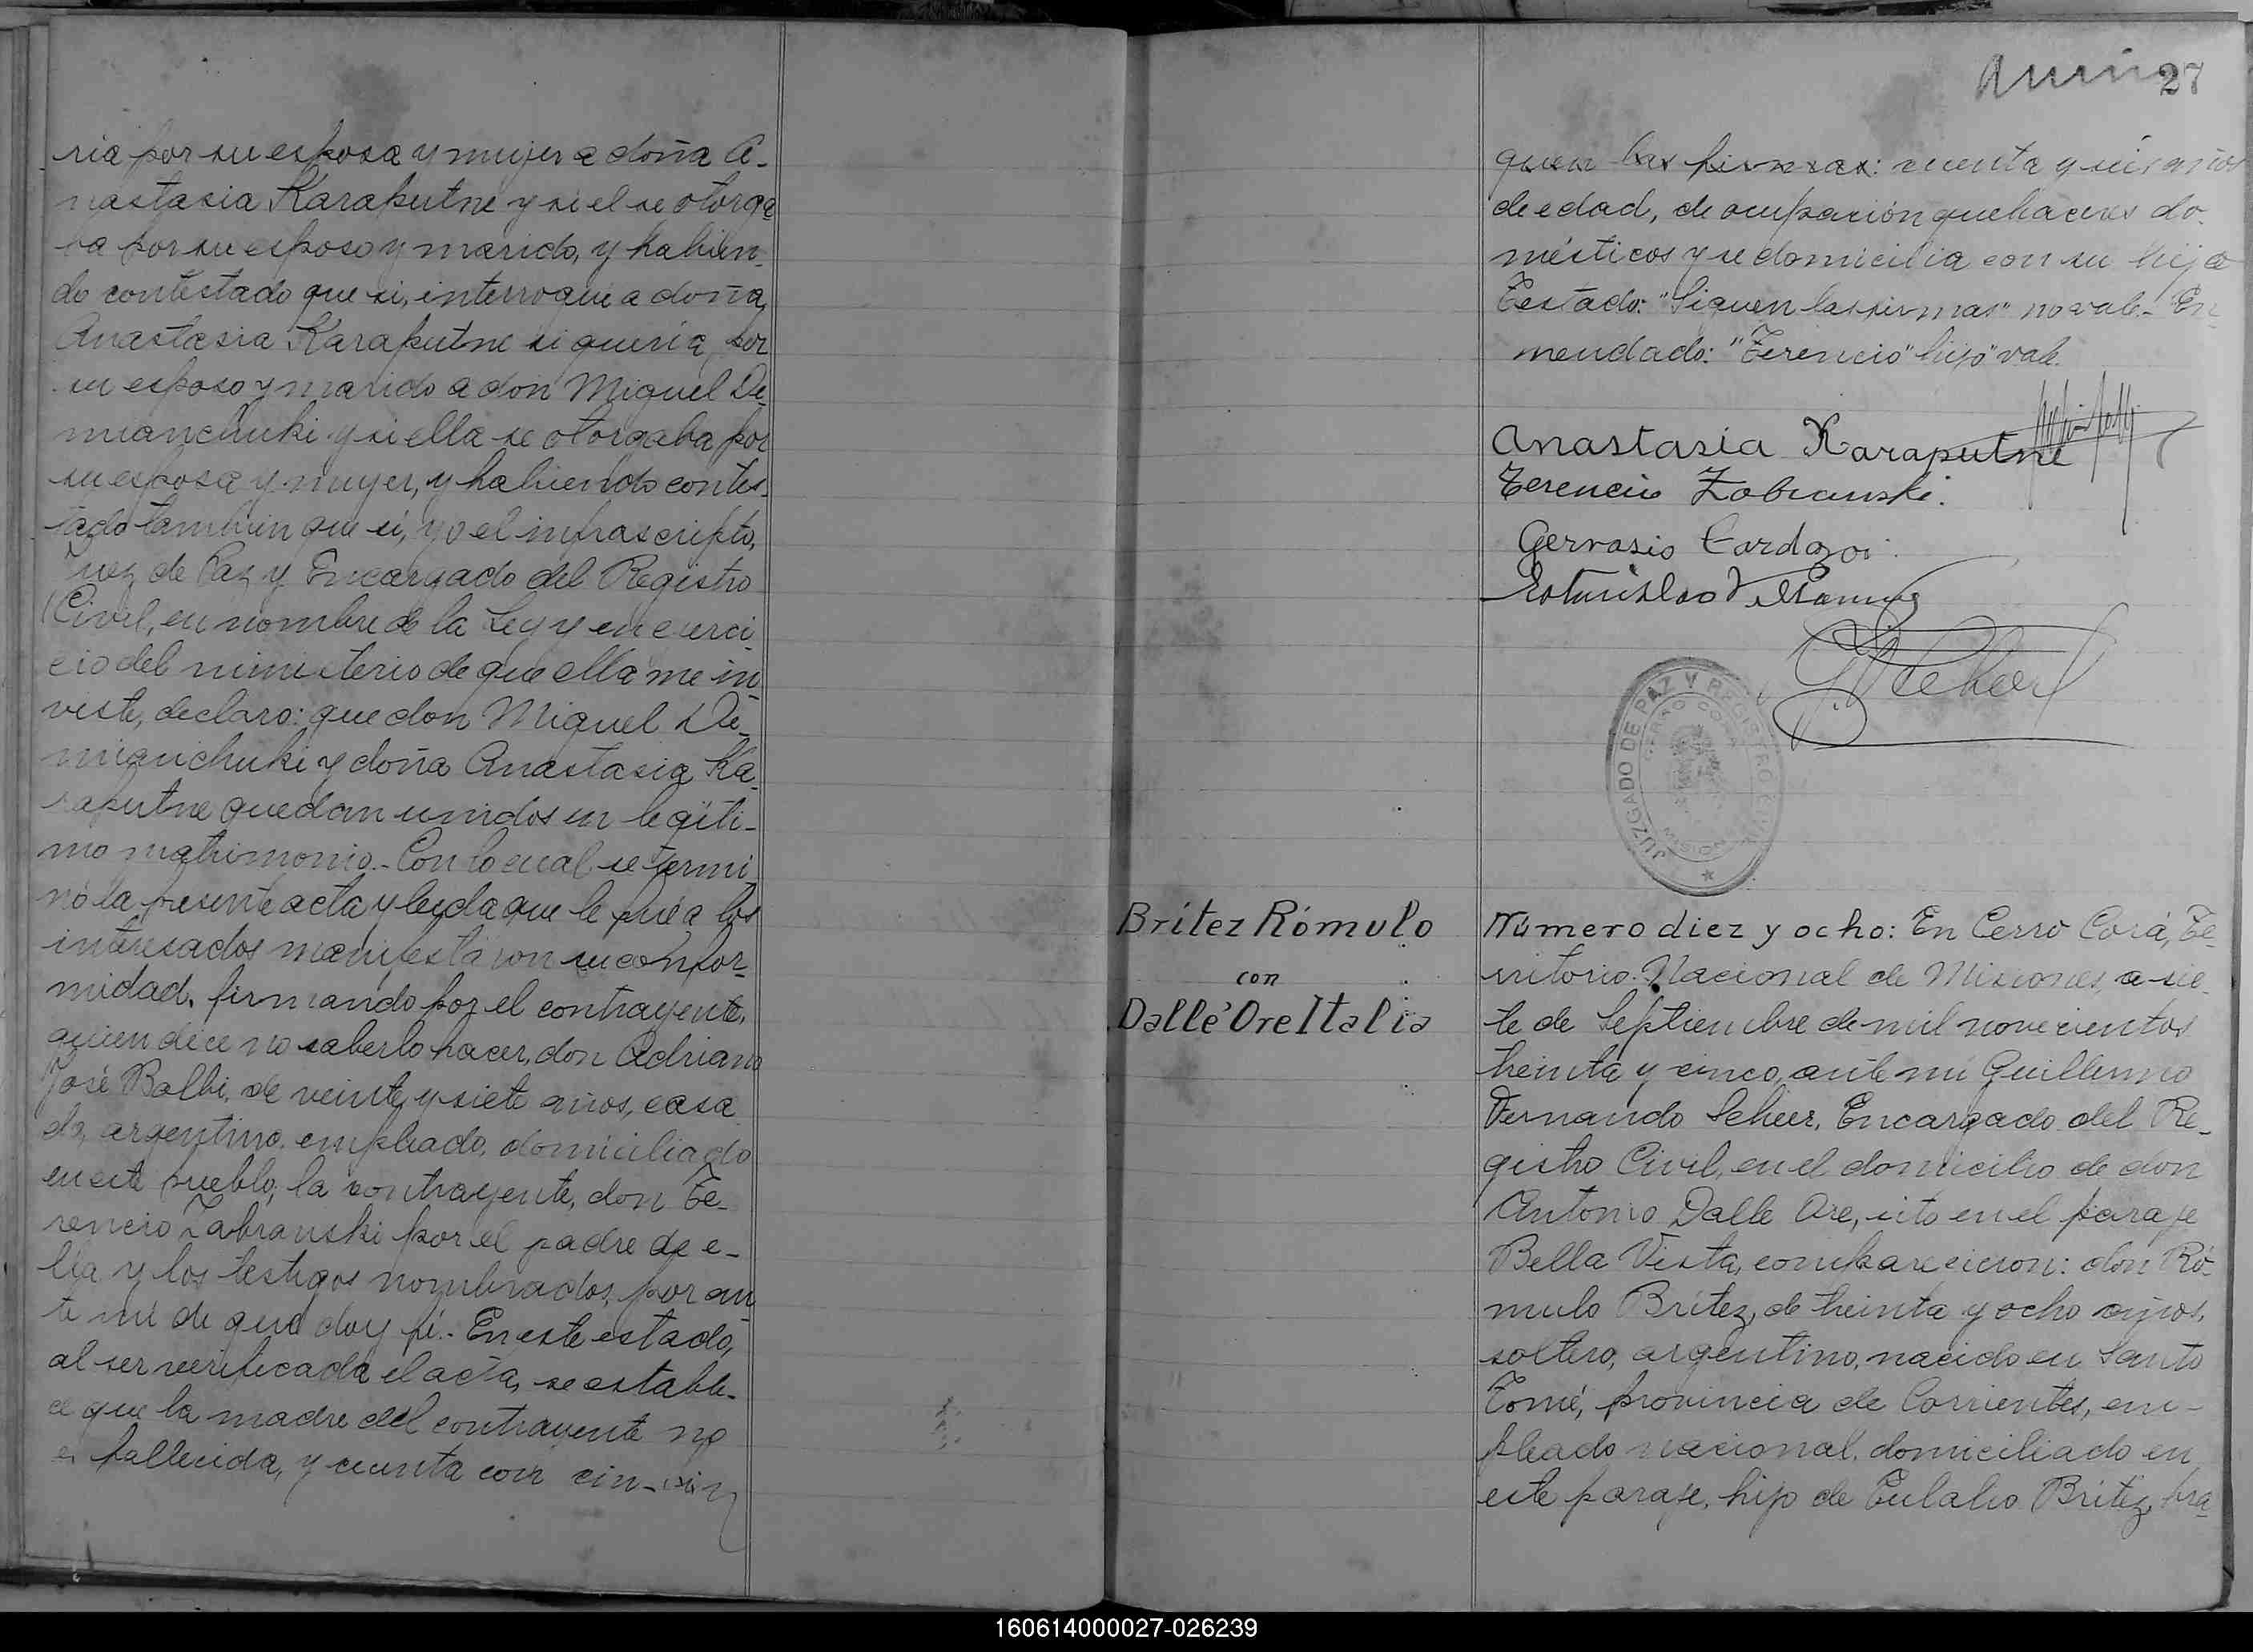 ria por su esposa y mujer a doña A-
nastasia Karaputne y si el se otorga
ba por su esposo y marido, y habien-
do contestado que si, interrogué a doña
Anastasia Karaputne si quería por
su esposo y marido a don Miguel De-
mianchuki y si ella se otorgaba por
su esposa y mujer, y habiendo contes-
tado tambien que si, yo el infrascripto,
Juez de Paz y Encargado del Registro
Civil, en nombre de la Ley y en ejerci
cio del ministerio de que ella me in-
veste, declaro: que don Miguel De-
mianchuki y doña Anastasia Ka-
raputne quedan unidos en legíti-
mo matrimonio.- Con lo cual se termi-
nó la presente acta y leida que le fué a los
interesados manifestaron su confor-
midad, firmando por el contrayente,
quien dice no saberlo hacer, don Adriano
José Balbi, de veinte y siete años, casa
do, argentino, empleado, domiciliado
en este pueblo; la contrayente, don Te-
rencio Zabranski por el padre de e-
lla y los testigos nombrados, por an-
te mí de que doy fé.- En este estado,
al ser verificada el acta, se estable-
ce que la madre del contrayente no
es fallecida, y cuenta con cin-
27
guen las firmas: cuenta y seis años
de edad, de ocupación quehaceres do-
mésticos y se domicilia con su hijo
Testado: "Siguen las firmas" no vale.- En-
mendado: "Terencio" hijo" vale.
Anastasia Karaputne
Terencio Zabranski.
Gervasio Cardozo
Estanislao
G F Scheer
JUZGADO DE PAZ Y REGISTRO CIVIL
CERRO CORA
MISIONES
Brítez Rómulo
con
Dalle'Ore Italia
Número diez y ocho: En Cerro Corá, Te-
rritorio Nacional de Misiones, a sie-
te de Septiembre de mil novecientos
treinta y cinco, ante mí Guillermo
Fernando Scheer, Encargado del Re-
gistro Civil, en el domicilio de don
Antonio Dalle Ore, sito en el paraje
Bella Vista, comparecieron: don Ró-
mulo Brítez, de treinta y ocho años,
soltero, argentino, nacido en Santo
Tomé, provincia de Corrientes, em-
pleado nacional, domiciliado en
este paraje, hijo de Eulalio Brítez, bra-
160614000027-026239